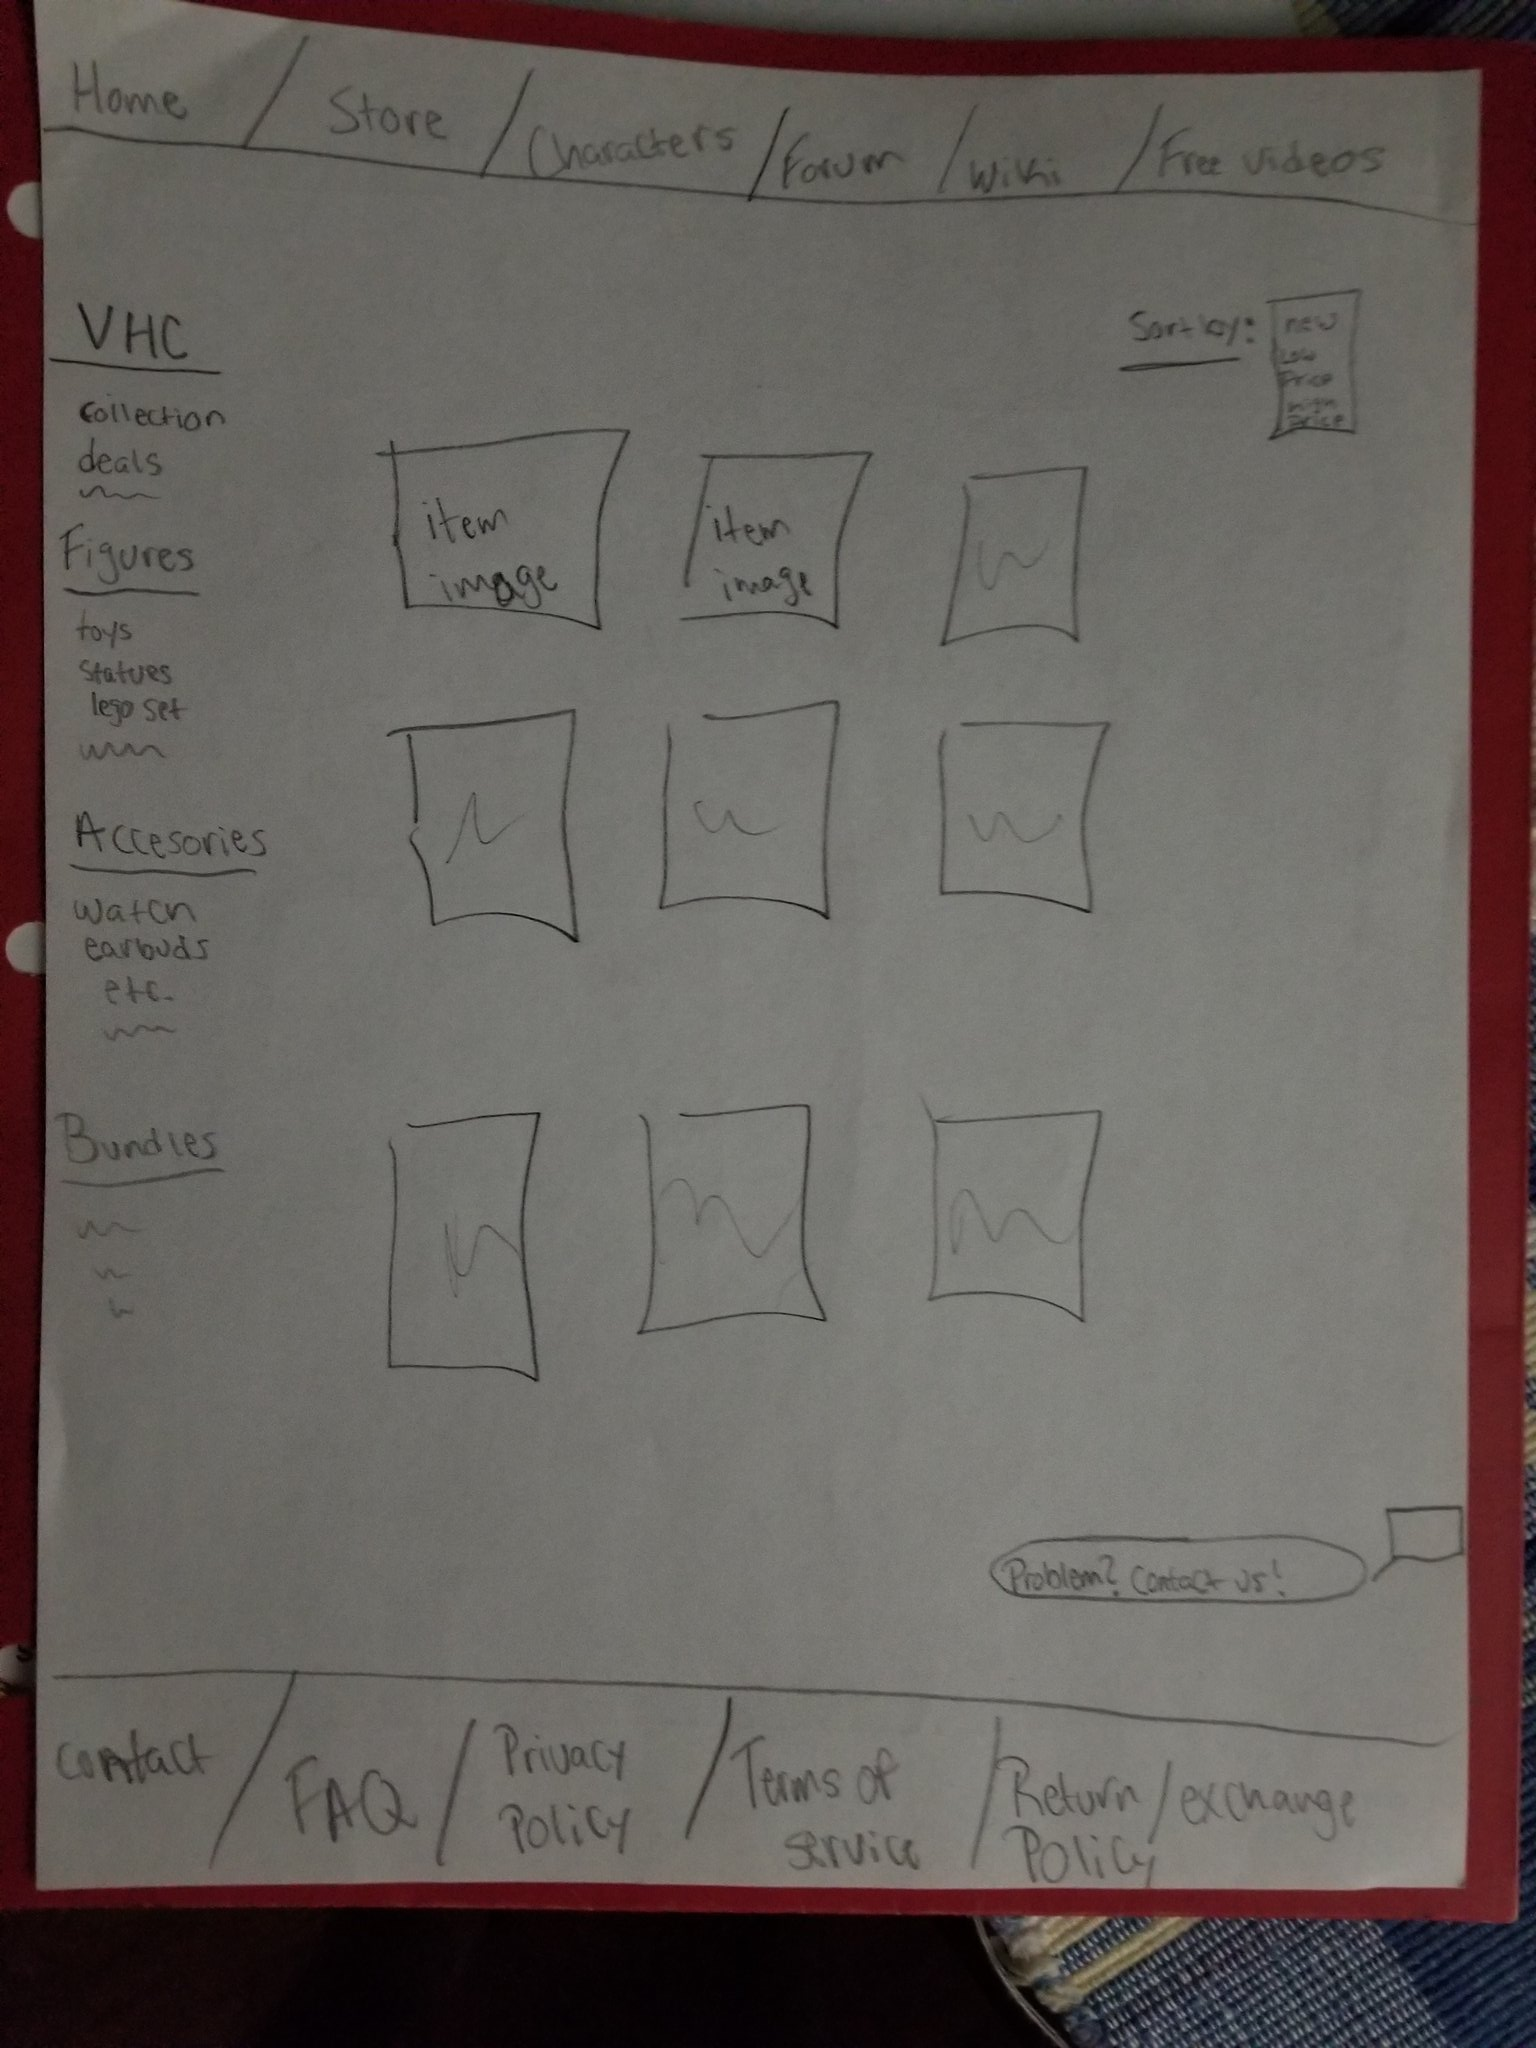 Home / Store / Characters / Forum / Wiki / Free videos
VHC
collection
deals
Figures
toys
Statues
lego set
Accesories
watch
earbuds
etc.
Bundles
Sort by:
new
Low
Price
High
Price
item
image
item
image
Problem? Contact us!
contact / FAQ / Privacy Policy / Terms of service / Return / exchange Policy